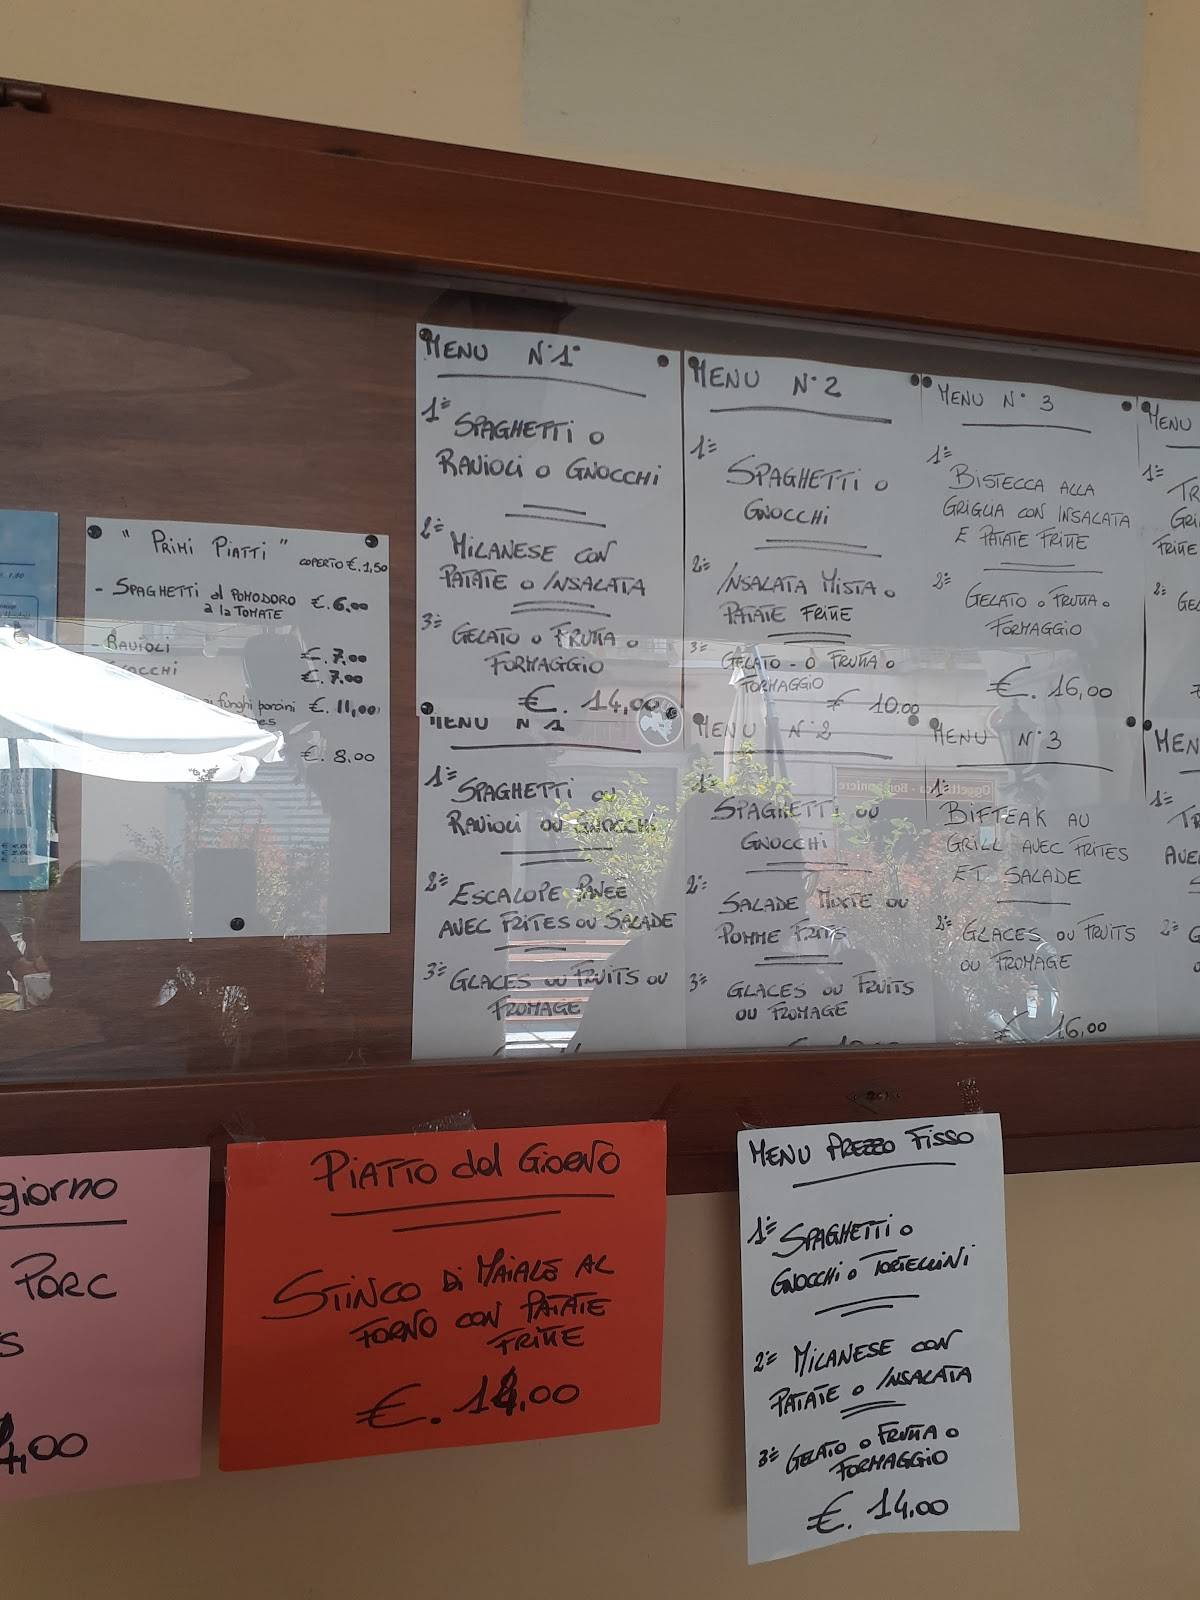 "PRIMI PIATTI"
COPERTO €.1,50
- SPAGHETTI al POMODORO €.6,00
a la TOMATE
- RAVIOLI €.7,00
€.7,00
funghi porcini €.11,00
€.8,00
MENU N°1°
1° SPAGHETTI O
RAVIOLI O GNOCCHI
2° MILANESE CON
PATATE O INSALATA
3° GELATO O FRUTTA O
FORMAGGIO
€. 14,00
MENU N°2
1° SPAGHETTI O
GNOCCHI
2° INSALATA MISTA O
PATATE FRITTE
3° GELATO - O FRUTTA O
FORMAGGIO
€ 10,00
MENU N° 3
1° BISTECCA ALLA
GRIGLIA CON INSALATA
E PATATE FRITTE
2° GELATO O FRUTTA O
FORMAGGIO
€. 16,00
MENU
1°
FRITTE
2°
MENU N°1
1° SPAGHETTI OU
RAVIOLI OU GNOCCHI
2° ESCALOPE PANEE
AVEC FRITES OU SALADE
3° GLACES OU FRUITS OU
FROMAGE
MENU N°2
1° SPAGHETTI OU
GNOCCHI
2° SALADE MIXTE OU
POMME FRITES
3° GLACES OU FRUITS
OU FROMAGE
MENU N°3
1° BIFTEAK AU
GRILL AVEC FRITES
ET SALADE
2° GLACES OU FRUITS
OU FROMAGE
€ 16,00
1°
2°
giorno
PORC
,00
PIATTO del GIORNO
STINCO DI MAIALE AL
FORNO CON PATATE
FRITTE
€. 14,00
MENU PREZZO FISSO
1° SPAGHETTI O
GNOCCHI O TORTELLINI
2° MILANESE CON
PATATE O INSALATA
3° GELATO O FRUTTA O
FORMAGGIO
€. 14,00